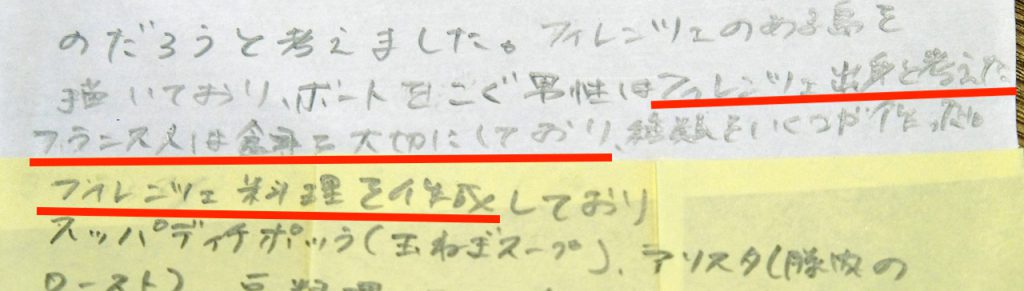 のだろうと考えました。フィレンツェのある島を
描いており、ボートをこぐ男性はフィレンツェ出身と考えた
フランス人は食事を大切にしており、種類をいくつか作った。
フィレンツェ料理を作成しており
スッパディチポッラ(玉ねぎスープ)、アリスタ(豚肉の
ロースト)